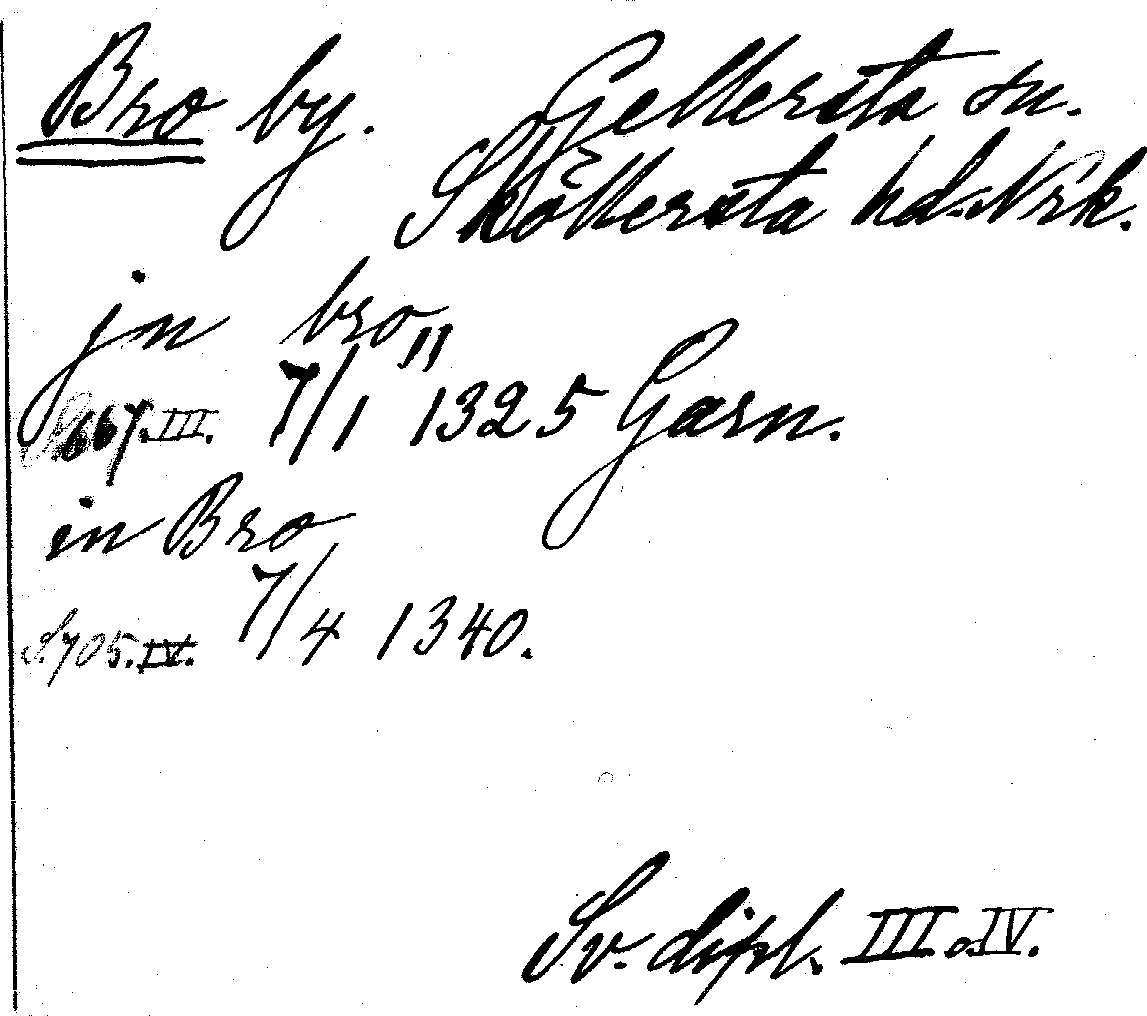 Bro by. Gellersta sn.
Sköllersta hd. Nrk.
jn bro"
S. 667. III. 7/1 1325 Garn.
in Bro
S. 705. IV. 7/4 1340.
Sv. dipl. III. o. IV.